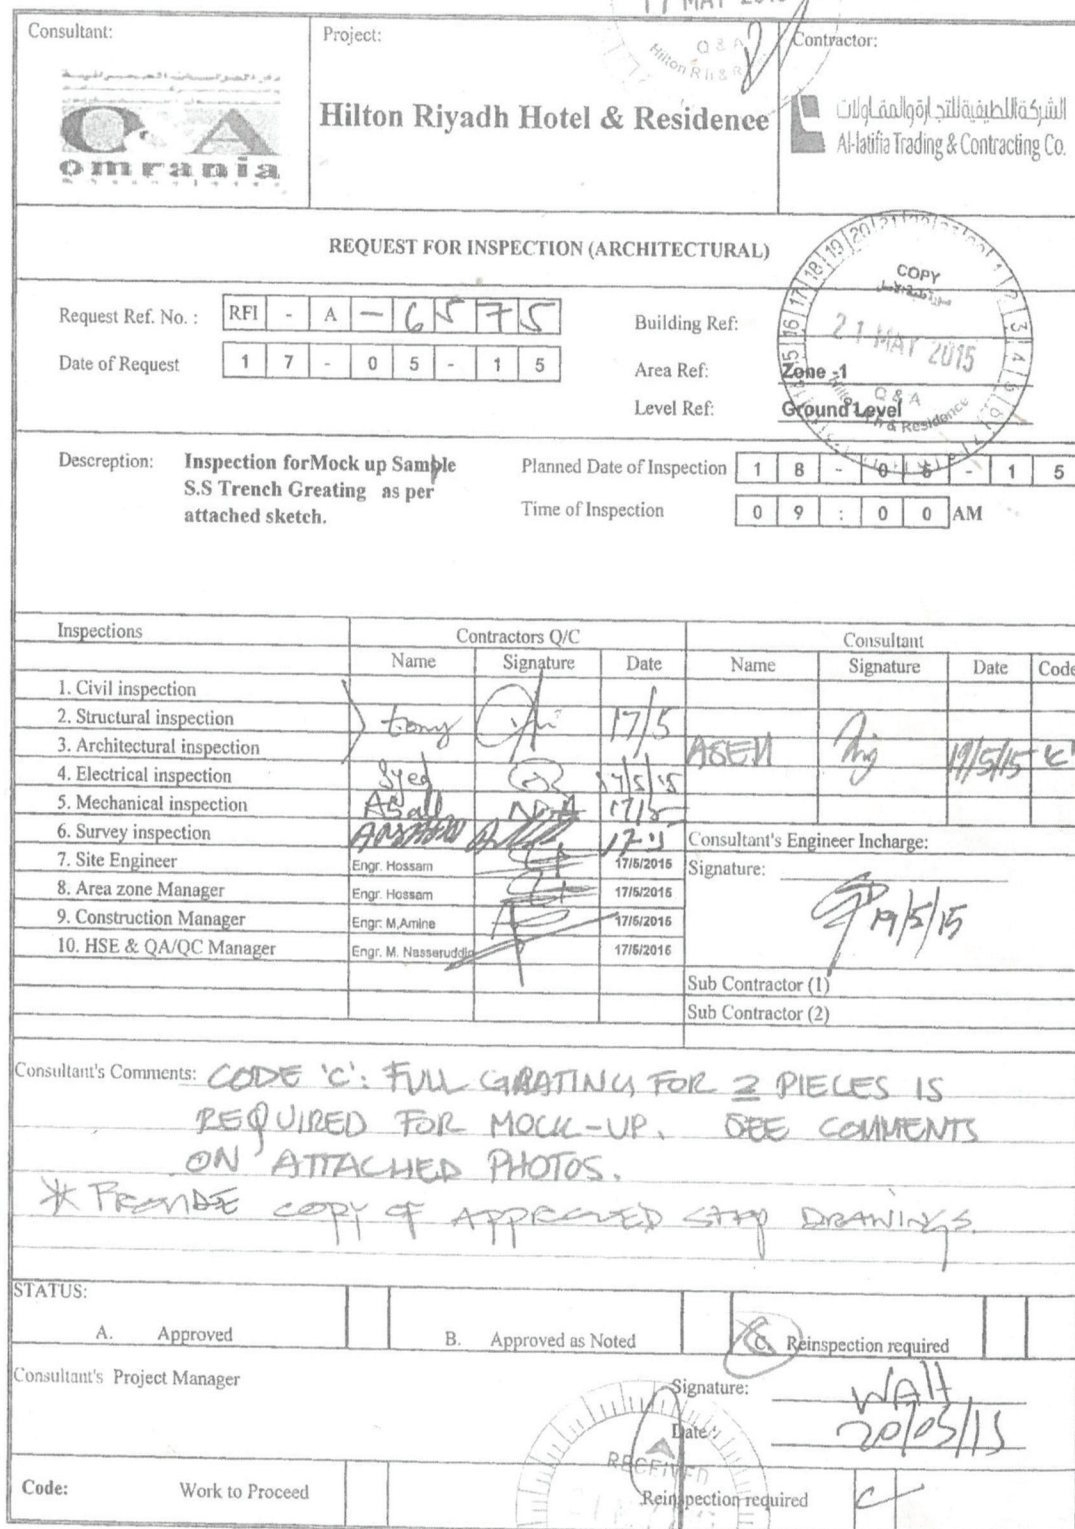 17 MAY
Q & A
Consultant:
Project:
Contractor:
omrania
Hilton Riyadh Hotel & Residence
الشركة اللطيفية للتجارة والمقاولات
Al-latifia Trading & Contracting Co.
REQUEST FOR INSPECTION (ARCHITECTURAL)
COPY
21 MAY 2015
Q & A
& Residence
Request Ref. No. : RFI - A - 6575
Building Ref:
Date of Request 17-05-15
Area Ref: Zone -1
Level Ref: Ground Level
Descreption: Inspection forMock up Sample
S.S Trench Greating as per
attached sketch.
Planned Date of Inspection 18-05-15
Time of Inspection 09:00 AM
Inspections Contractors Q/C Consultant
Name Signature Date Name Signature Date Code
1. Civil inspection
2. Structural inspection tony 17/5
3. Architectural inspection ASEM 19/5/15 'C'
4. Electrical inspection Syed 17/5/15
5. Mechanical inspection 17/5
6. Survey inspection 17-5
Consultant's Engineer Incharge:
7. Site Engineer Engr. Hossam 17/5/2015
Signature:
8. Area zone Manager Engr. Hossam 17/5/2015
9. Construction Manager Engr. M,Amine 17/5/2015
19/5/15
10. HSE & QA/QC Manager Engr. M. Nasseruddin 17/5/2015
Sub Contractor (1)
Sub Contractor (2)
Consultant's Comments: CODE 'C': FULL GRATING FOR 2 PIECES IS
REQUIRED FOR MOCK-UP. SEE COMMENTS
ON ATTACHED PHOTOS.
* PROVIDE COPY OF APPROVED SHOP DRAWINGS.
STATUS:
A. Approved
B. Approved as Noted
C. Reinspection required
Consultant's Project Manager
Signature:
Date:
20/05/15
RECEIVED
Code: Work to Proceed
Reinspection required C